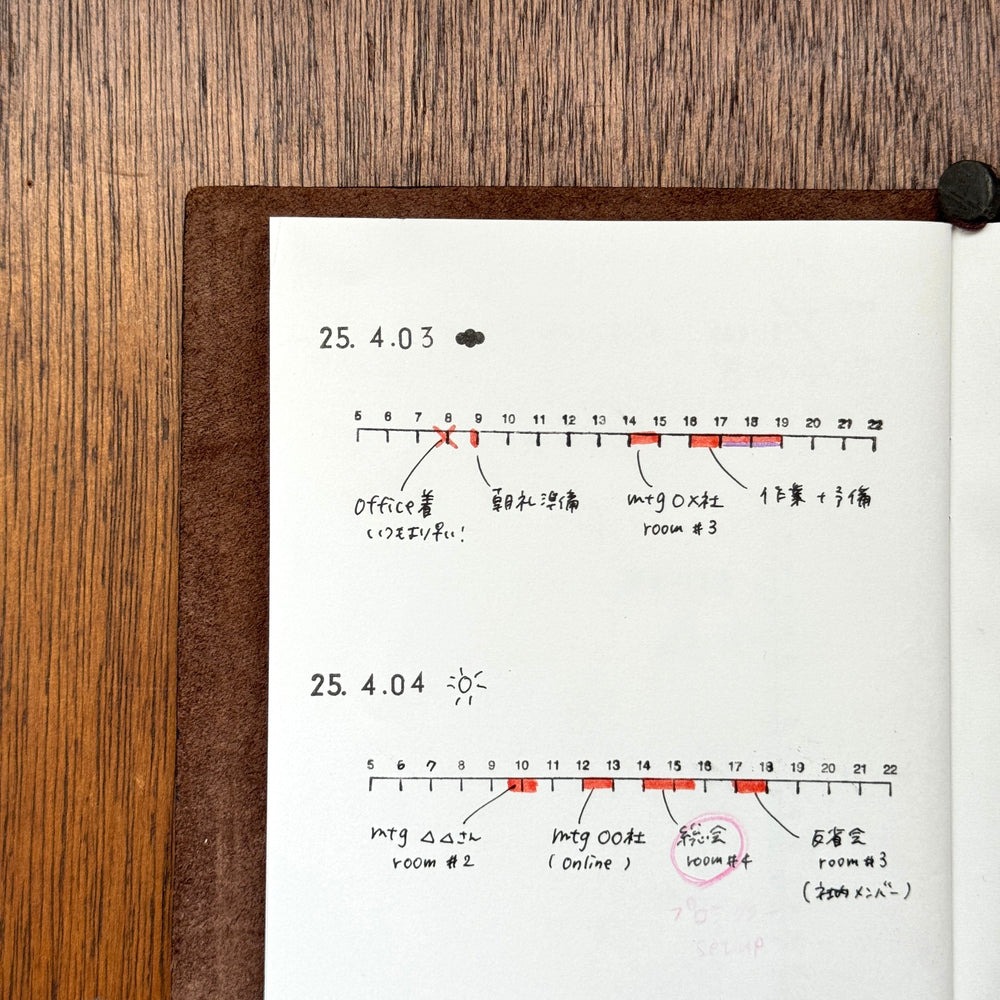 25. 4.03
5 6 7 8 9 10 11 12 13 14 15 16 17 18 19 20 21 22
Office着
いつもより早い!
朝礼準備
mtg ○×社
room #3
作業+予備
25. 4.04
5 6 7 8 9 10 11 12 13 14 15 16 17 18 19 20 21 22
mtg △△さん
room #2
mtg ○○社
(Online)
総会
room #4
反省会
room #3
(社内メンバー)